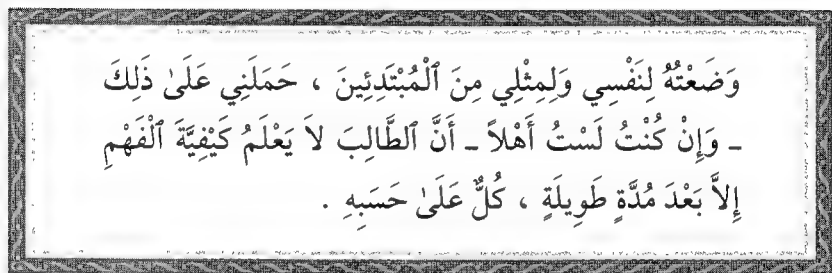 وَضَعْتُهُ لِنَفْسِي وَلِمِثْلِي مِنَ ٱلْمُبْتَدِئِينَ ، حَمَلَنِي عَلَىٰ ذَلِكَ
ـ وَإِنْ كُنْتُ لَسْتُ أَهْلاً ـ أَنَّ ٱلطَّالِبَ لاَ يَعْلَمُ كَيْفِيَّةَ ٱلْفَهْمِ
إِلاَّ بَعْدَ مُدَّةٍ طَوِيلَةٍ ، كُلٌّ عَلَىٰ حَسَبِهِ .